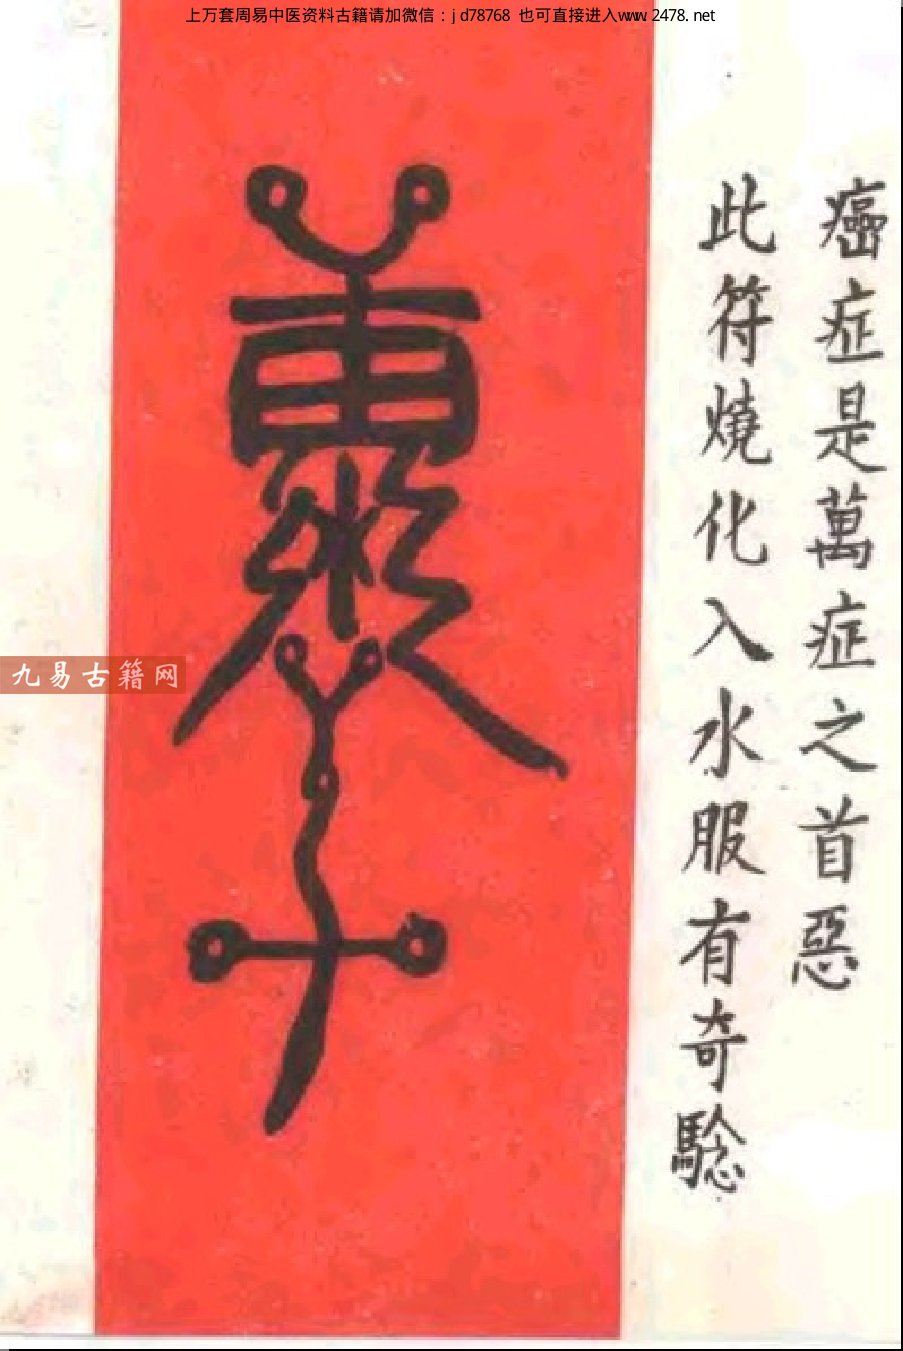 上万套周易中医资料古籍请加微信：jd78768 也可直接进入www.2478.net
癌症是萬症之首惡
此符燒化入水服有奇騐
九易古籍网